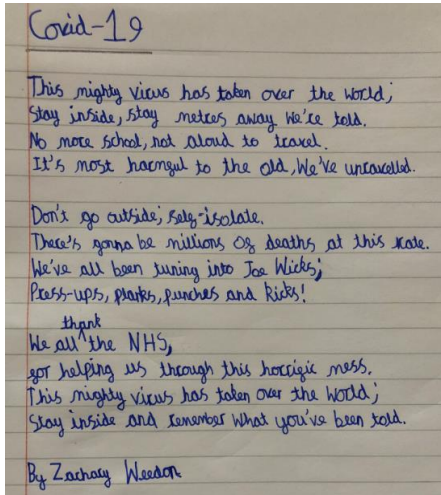 Covid-19
This mighty virus has taken over the world;
Stay inside, stay metres away we're told.
No more school, not aloud to travel.
It's most harmful to the old, We've unravelled.
Don't go outside; self-isolate.
There's gonna be millions of deaths at this rate.
We've all been tuning into Joe Wicks;
Press-ups, planks, punches and kicks!
We all thank the NHS,
for helping us through this horrific mess.
This mighty virus has taken over the world;
Stay inside and remember what you've been told.
By Zachary Weedon